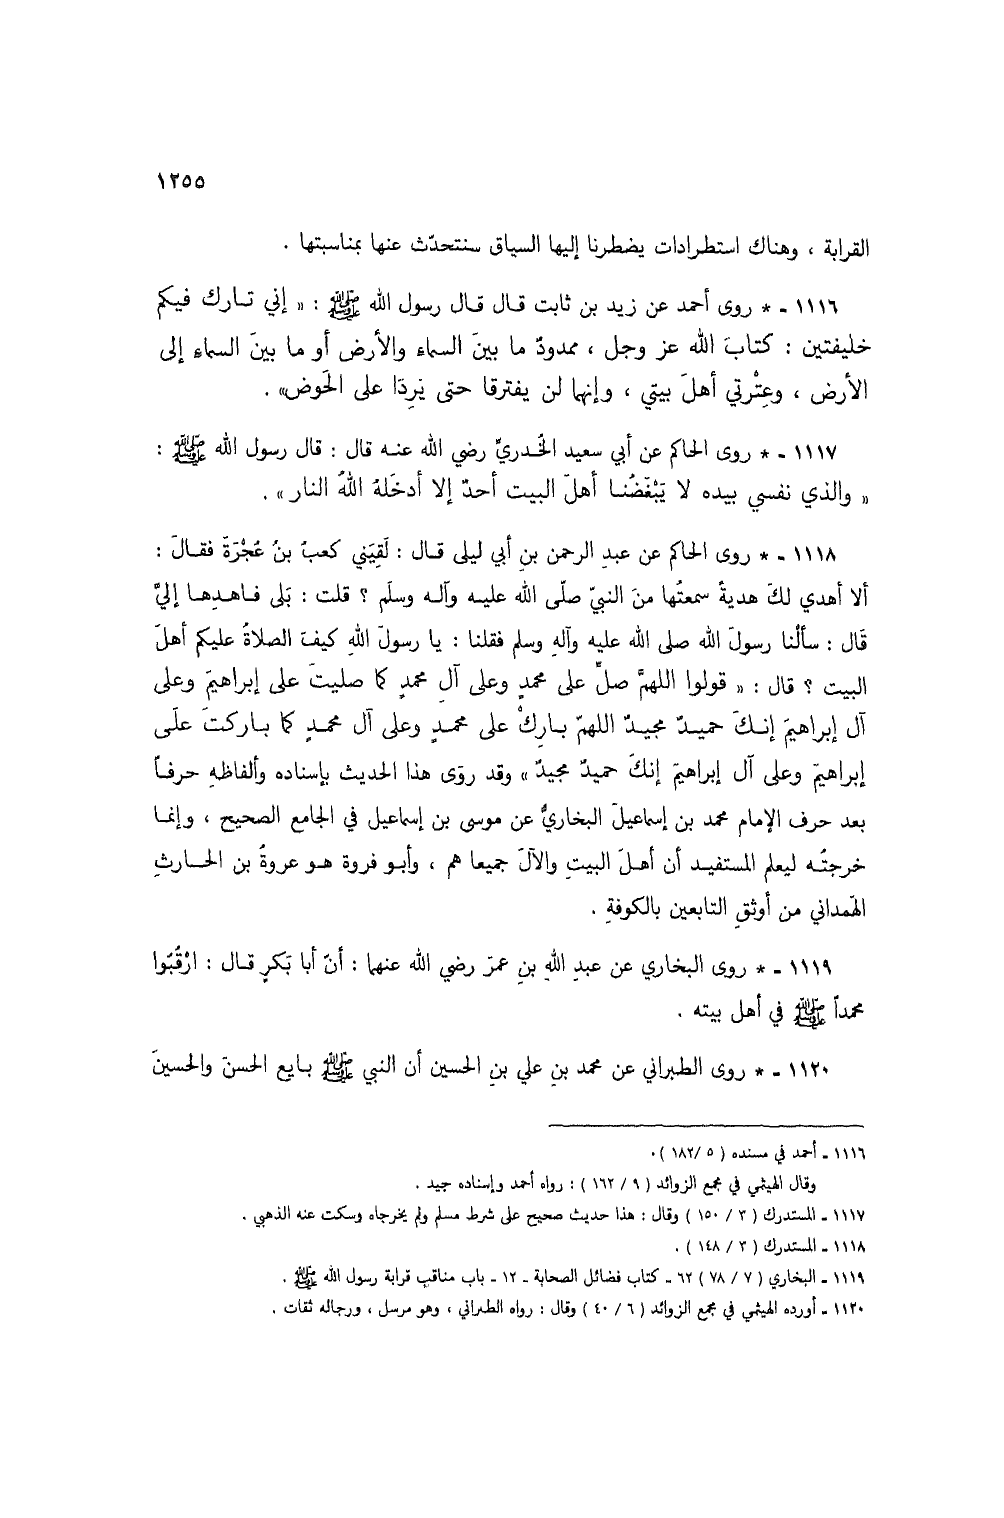 ١٢٥٥
القرابة ، وهناك استطرادات يضطرنا إليها السياق سنتحدّث عنها بمناسبتها .
١١١٦ ـ * روى أحمد عن زيد بن ثابت قال قال رسول الله ﷺ : « إني تارك فيكم
خليفتين : كتابَ الله عز وجل ، ممدودٌ ما بينَ السماء والأرض أو ما بينَ السماء إلى
الأرض ، وعِتْرتي أهلَ بيتي ، وإنهما لن يفترقا حتى يَرِدَا على الحَوض» .
١١١٧ ـ * روى الحاكم عن أبي سعيد الخُدريِّ رضي الله عنه قال : قال رسول الله ﷺ :
« والذي نفسي بيده لا يَبْغَضُنا أهلَ البيت أحدٌ إلا أدخَلهُ اللهُ النار» .
١١١٨ ـ * روى الحاكم عن عبدِ الرحمن بنِ أبي ليلى قال : لَقِيَني كعبُ بنُ عُجْرَةَ فقالَ :
ألا أهدي لكَ هديةً سمعتُها منَ النبيّ صلّى الله عليه وآله وسلّم ؟ قلت : بَلى فاهدِها إليَّ
قَال : سألْنا رسولَ الله صلى الله عليه وآلهِ وسلم فقلنا : يا رسولَ اللهِ كيفَ الصلاةُ عليكم أهلَ
البيت ؟ قال : « قولوا اللهمَّ صلِّ على محمدٍ وعلى آلِ محمدٍ كما صليتَ على إبراهيمَ وعلى
آل إبراهيمَ إنكَ حميدٌ مجيدٌ اللهمّ بارِكْ على محمدٍ وعلى آل محمدٍ كما باركتَ علَى
إبراهيمَ وعلى آل إبراهيمَ إنكَ حميدٌ مجيدٌ » وقد روَى هذا الحديث بإسناده وألفاظهِ حرفاً
بعد حرف الإمام محمد بن إسماعيلَ البخاريُّ عن موسى بن إسماعيل في الجامع الصحيح ، وإنما
خرجتُه ليعلم المستفيد أن أهلَ البيتِ والآلَ جميعا هم ، وأبو فروة هو عروةُ بن الحارثِ
الهَمداني من أوثقِ التابعين بالكوفةِ .
١١١٩ ـ * روى البخاري عن عبدِ اللهِ بنِ عمرَ رضي الله عنهما : أنّ أبا بَكرٍ قال : ارْقُبُوا
محمداً ﷺ في أهل بيته .
١١٢٠ ـ * روى الطبراني عن محمد بنِ علي بنِ الحسين أن النبي ﷺ بايع الحسنَ والحسينَ
١١١٦ ـ أحمد في مسنده ( ٥ /١٨٢ ).
وقال الهيثمي في مجمع الزوائد ( ٩ / ١٦٢ ) : رواه أحمد وإسناده جيد .
١١١٧ ـ المستدرك ( ٣ / ١٥٠ ) وقال : هذا حديث صحيح على شرط مسلم ولم يخرجاه وسكت عنه الذهبي .
١١١٨ ـ المستدرك ( ٣ / ١٤٨ ) .
١١١٩ ـ البخاري ( ٧ / ٧٨ ) ٦٢ ـ كتاب فضائل الصحابة ـ ١٢ ـ باب مناقب قرابة رسول الله ﷺ .
١١٢٠ ـ أورده الهيثمي في مجمع الزوائد ( ٦ / ٤٠ ) وقال : رواه الطبراني ، وهو مرسل ، ورجاله ثقات .